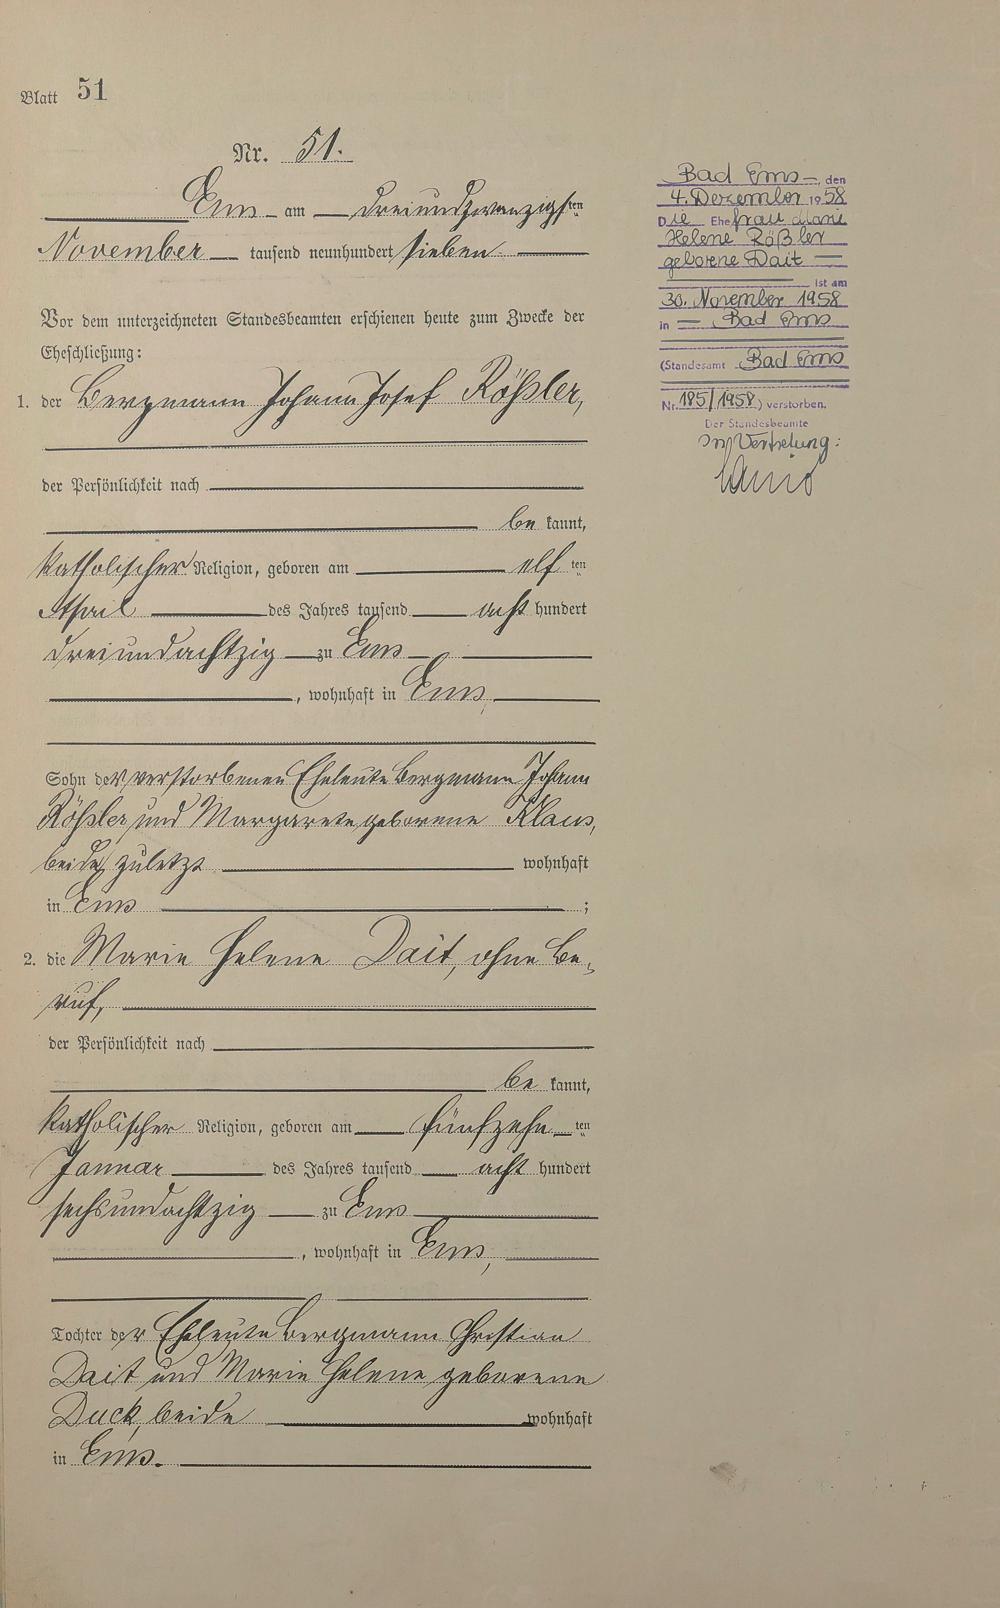 Blatt 51
Nr. 51.
Ems am dreiundzwanzigsten
November tausend neunhundert sieben
Vor dem unterzeichneten Standesbeamten erschienen heute zum Zwecke der
Eheschließung:
1. der Bergmann Johann Josef Rößler,
der Persönlichkeit nach
be kannt,
katholischer Religion, geboren am elf ten
April des Jahres tausend acht hundert
dreiundachtzig zu Ems
, wohnhaft in Ems,
Sohn der verstorbenen Eheleute Bergmann Johann
Rößler und Margarete geborene Klaus,
beide zuletzt wohnhaft
in Ems ;
2. die Marie Helene Dait, ohne Be-
ruf,
der Persönlichkeit nach
be kannt,
katholischer Religion, geboren am fünfzehn ten
Januar des Jahres tausend acht hundert
sechsundachtzig zu Ems
, wohnhaft in Ems,
Tochter der Eheleute Bergmann Christian
Dait und Marie Helene geborene
Duck, beide wohnhaft
in Ems.
Bad Ems, den
4. Dezember 1958
Die Ehefrau Marie
Helene Rößler
geborene Dait
ist am
30. November 1958
in Bad Ems
(Standesamt Bad Ems
Nr. 185/1958) verstorben.
Der Standesbeamte
In Vertretung: